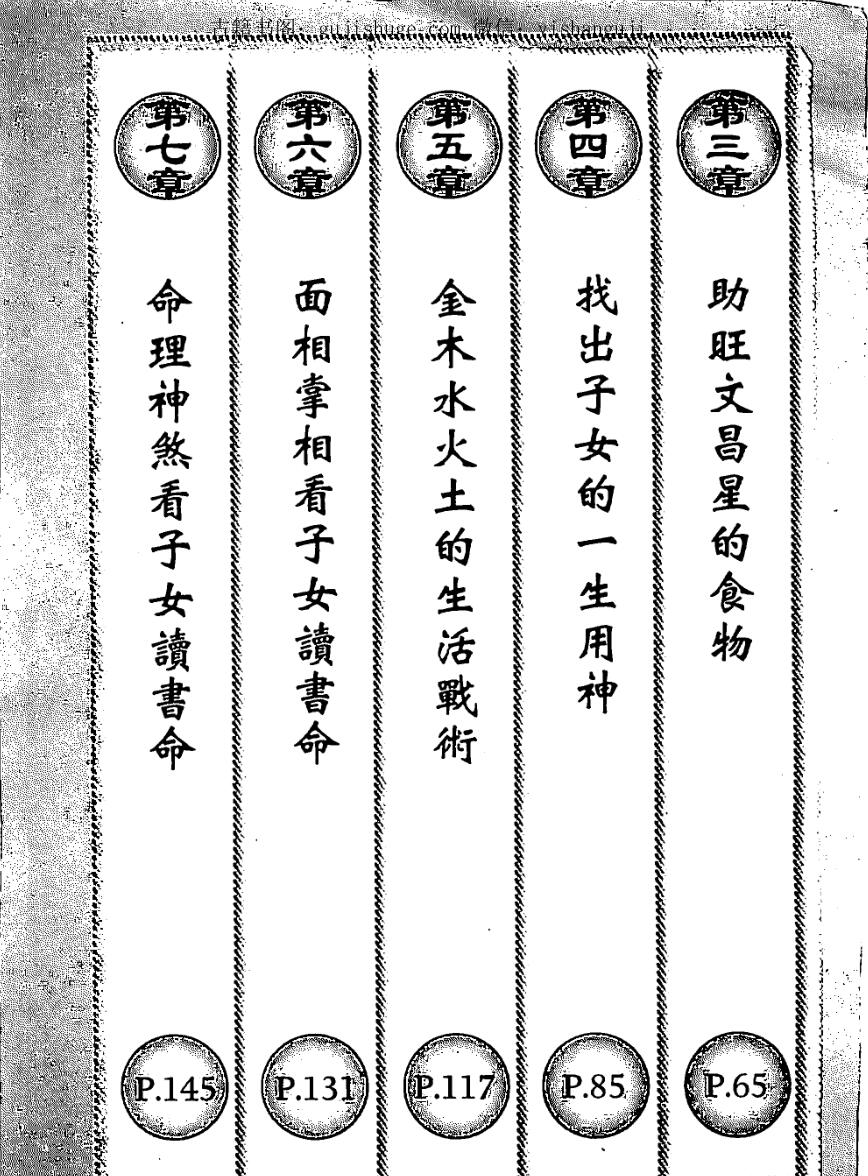 古籍书阁：gujishuge.com 微信：yishanguji
第三章
助旺文昌星的食物
P.65
第四章
找出子女的一生用神
P.85
第五章
金木水火土的生活戰術
P.117
第六章
面相掌相看子女讀書命
P.131
第七章
命理神煞看子女讀書命
P.145